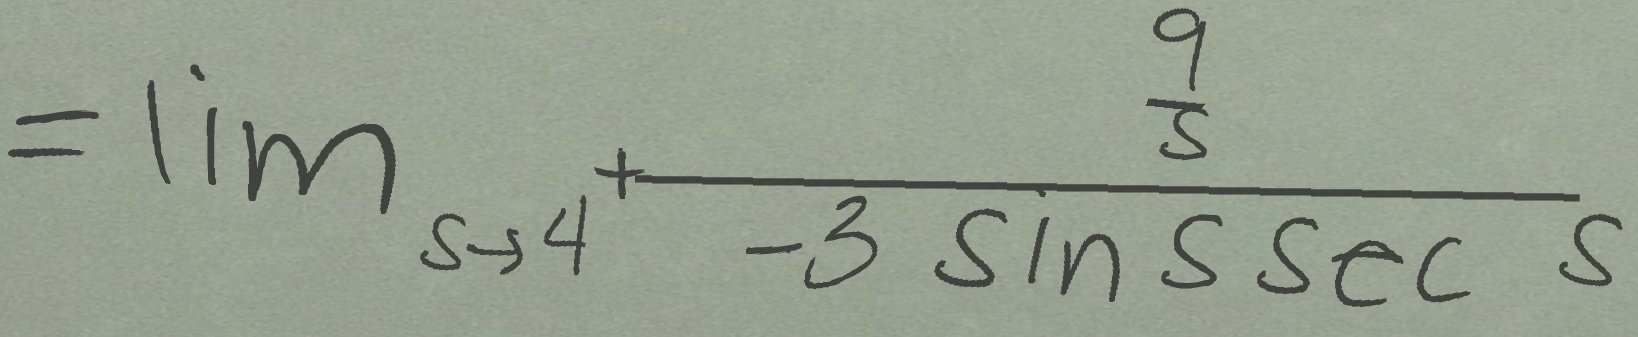 = \lim_{s \to 4^+} \frac{\frac{9}{s}}{-3 \sin s \sec s}